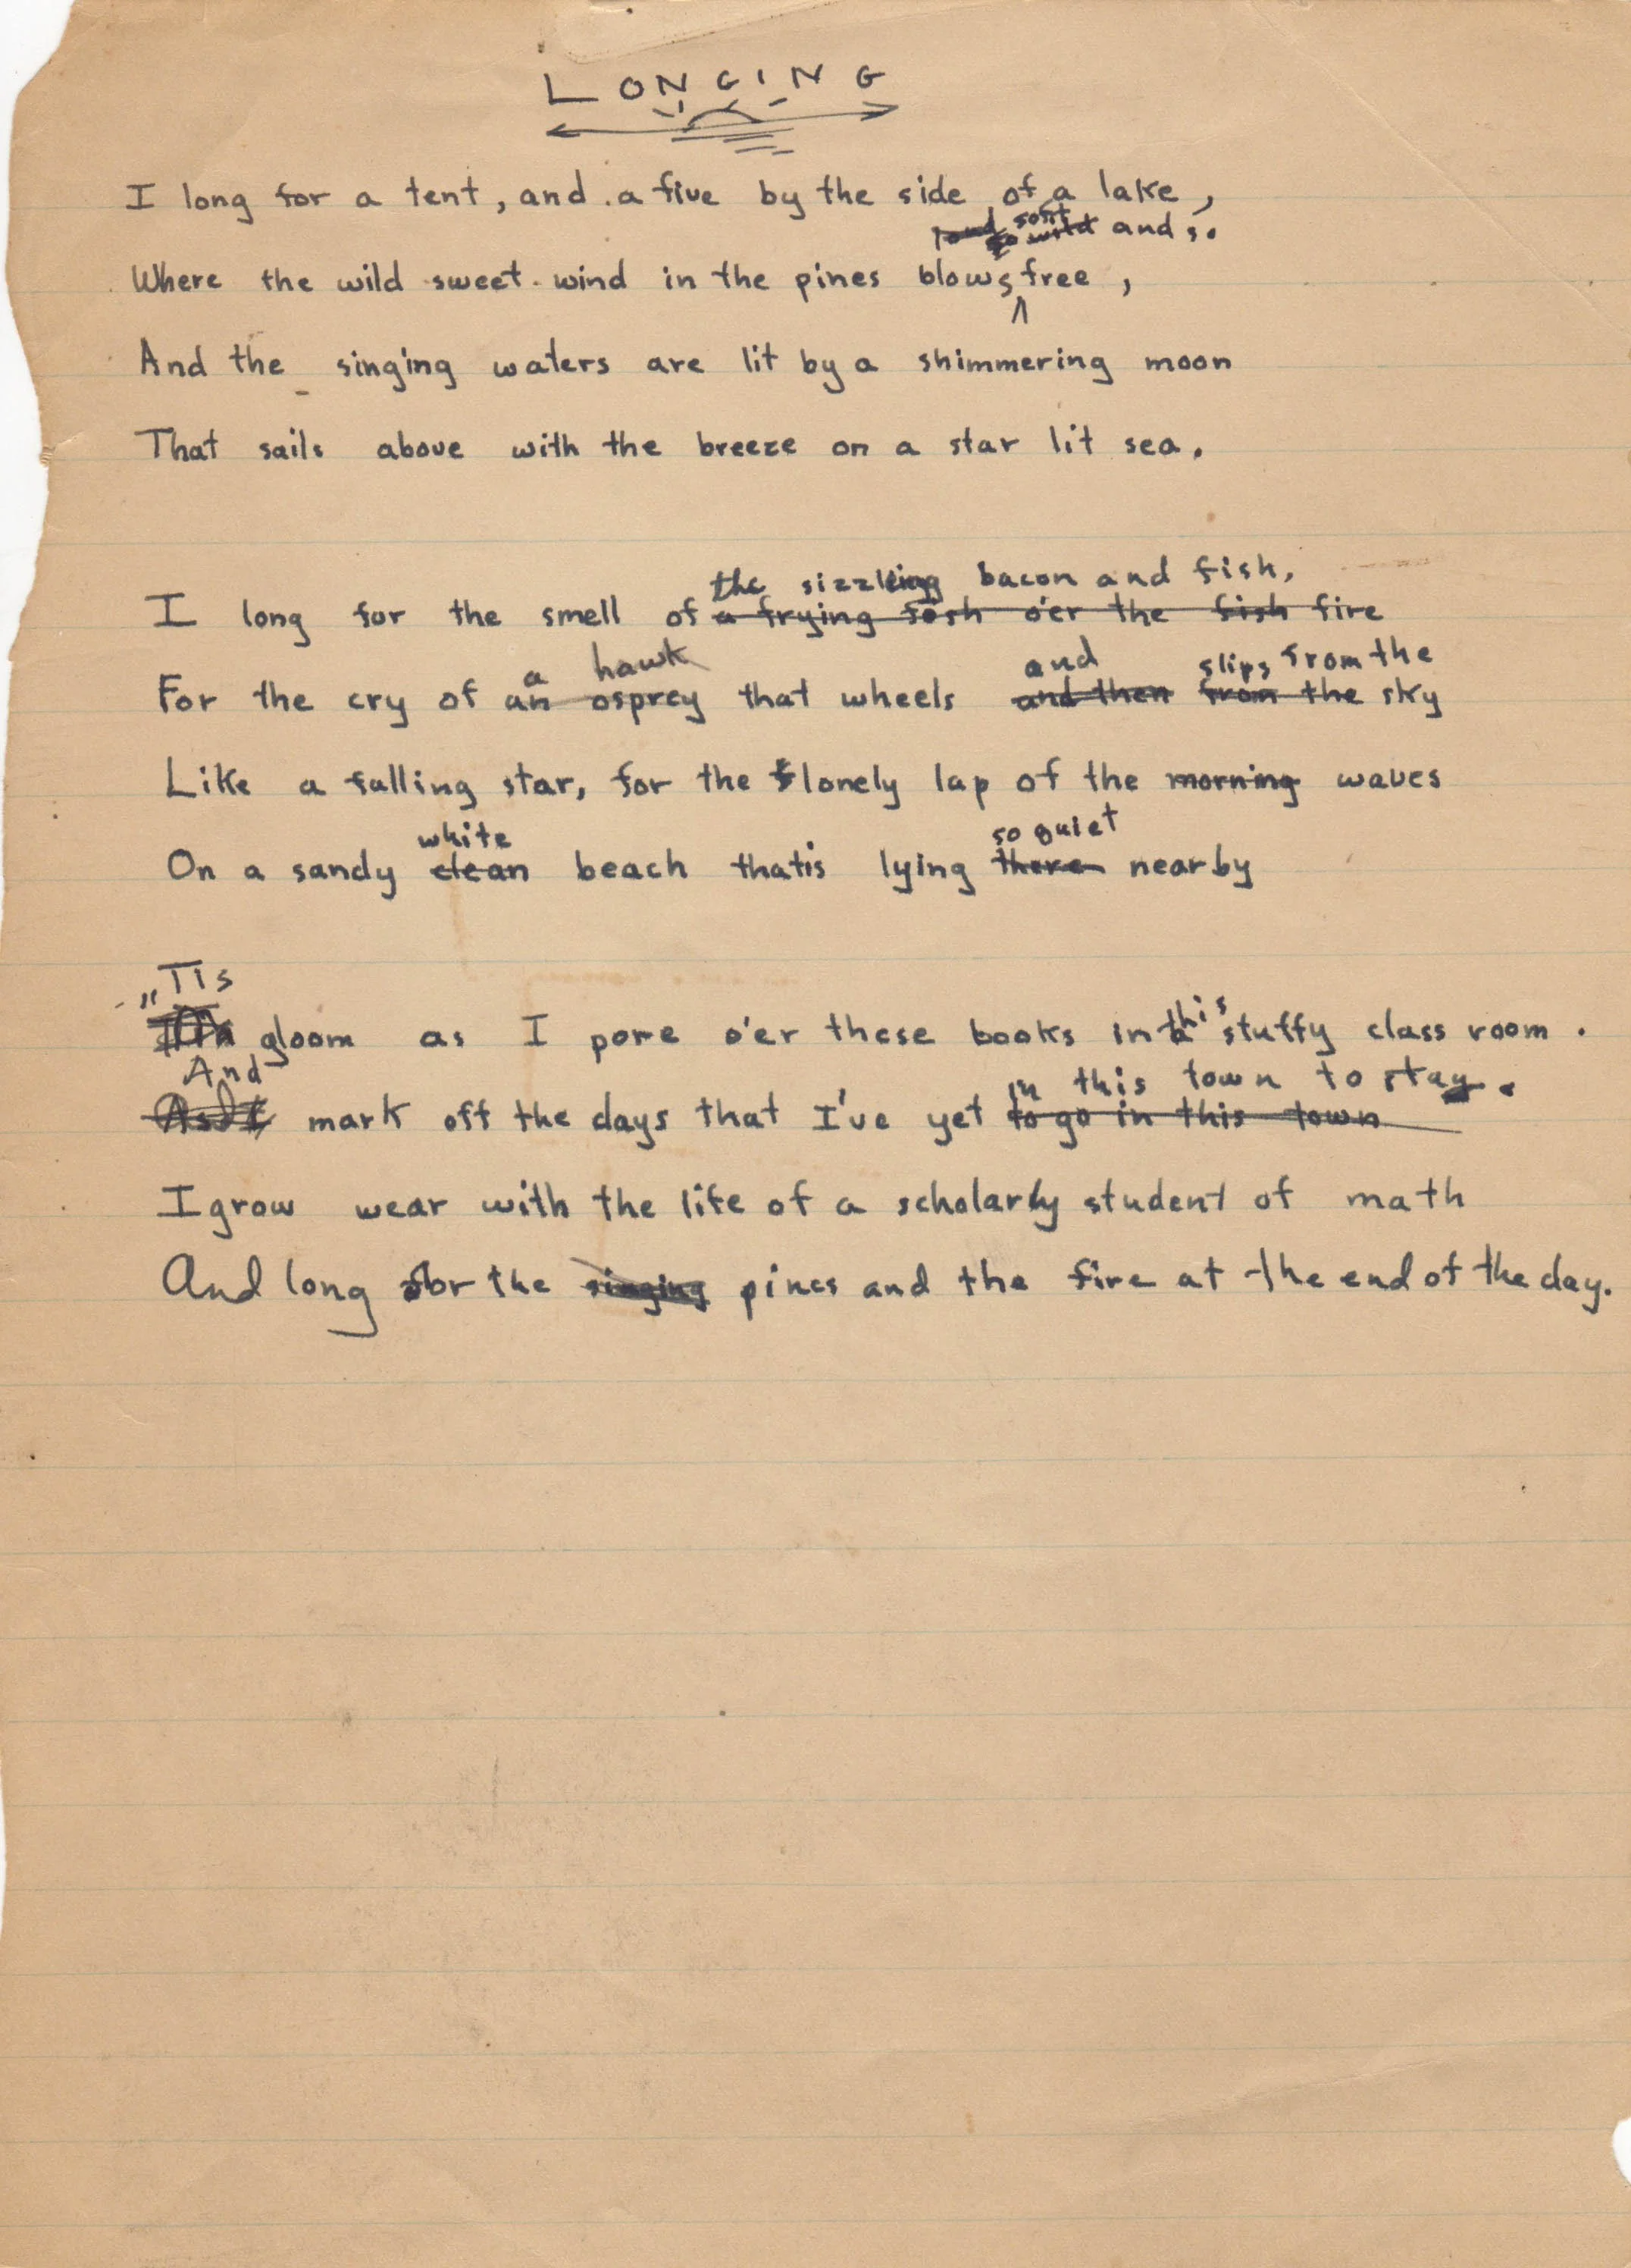 LONGING
I long for a tent, and a five by the side of a lake,
loud soft
so wild and s.
Where the wild sweet wind in the pines blows free,
And the singing waters are lit by a shimmering moon
That sails above with the breeze on a star lit sea.
the sizzling bacon and fish,
I long for the smell of a frying fish o'er the fish fire
a hawk and slips from the
For the cry of an osprey that wheels and then from the sky
Like a falling star, for the lonely lap of the morning waves
white so quiet
On a sandy clean beach thatis lying there nearby
"Tis
gloom as I pore o'er these books in this stuffy class room.
And in this town to stay.
As I mark off the days that I've yet to go in this town
I grow wear with the life of a scholarly student of math
And long for the singing pines and the fire at the end of the day.